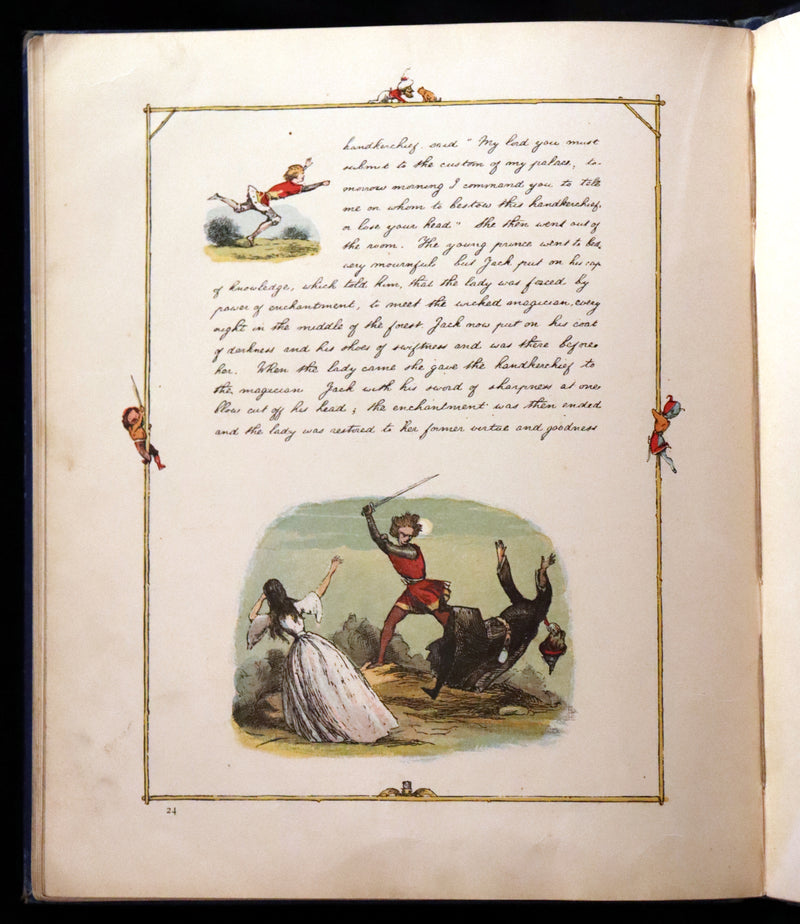 handkerchief, said "My lord you must
submit to the custom of my palace, to-
morrow morning I command you to tell
me on whom to bestow this handkerchief,
or lose your head" She then went out of
the room. The young prince went to bed,
very mournful but Jack put on his cap
of knowledge, which told him, that the lady was forced by
power of enchantment, to meet the wicked magician, every
night in the middle of the forest. Jack now put on his coat
of darkness and his shoes of swiftness and was there before
her. When the lady came she gave the handkerchief to
the magician Jack with his sword of sharpness at one
blow cut off his head; the enchantment was then ended
and the lady was restored to her former virtue and goodness
24